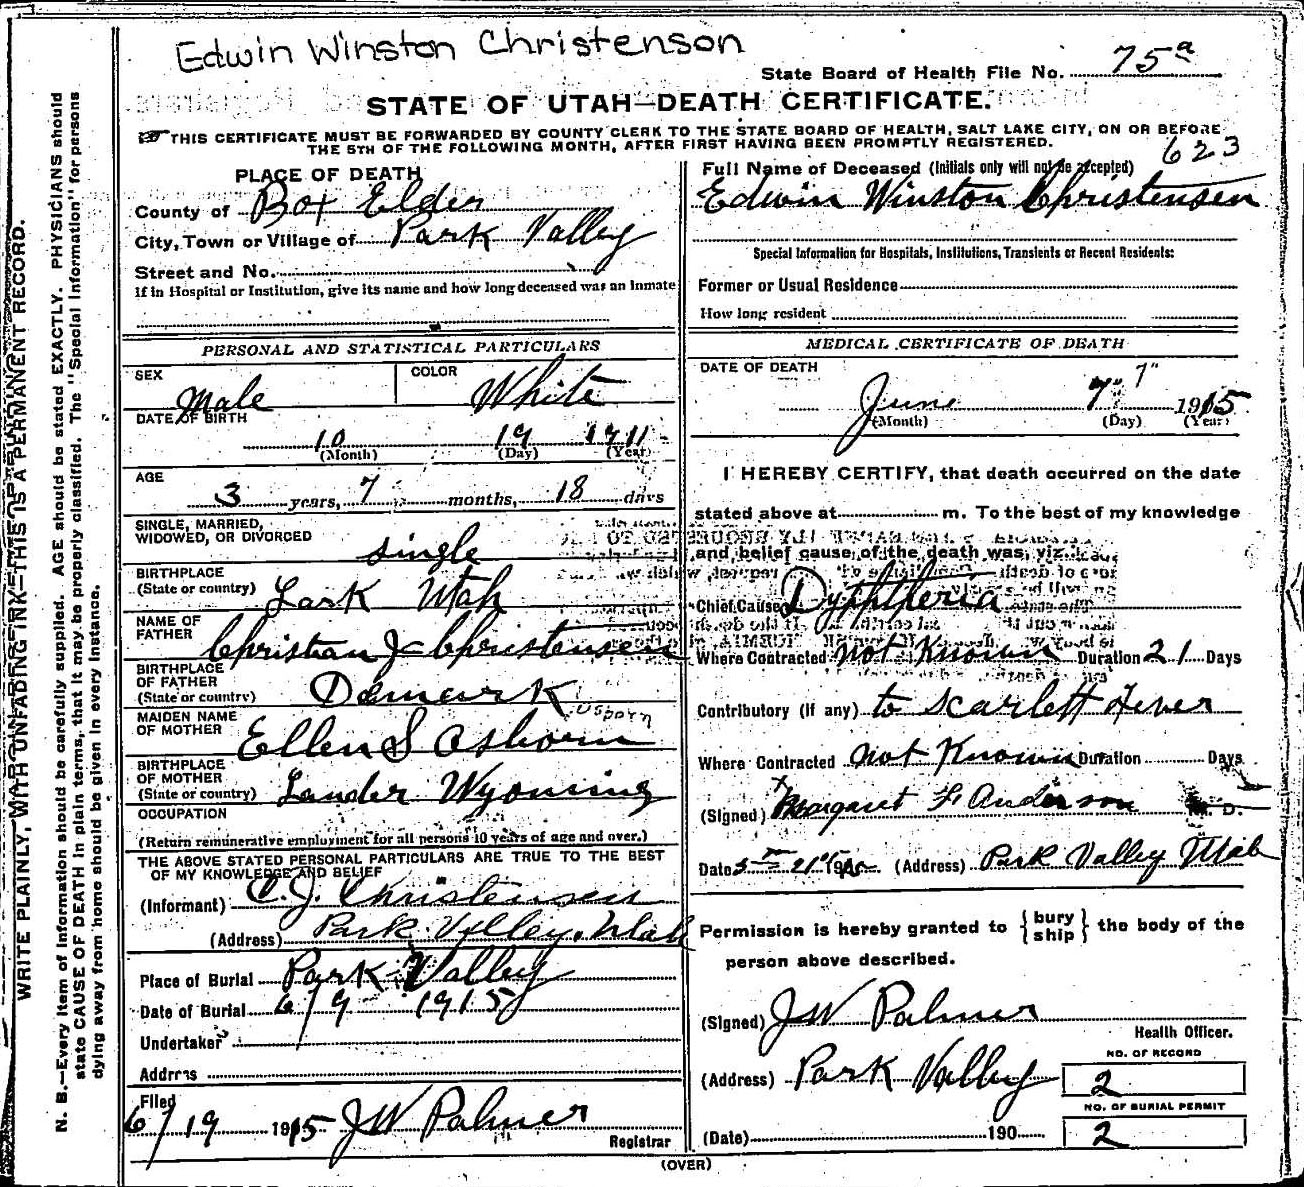 Edwin Winston Christenson
State Board of Health File No. 75a
STATE OF UTAH—DEATH CERTIFICATE.
THIS CERTIFICATE MUST BE FORWARDED BY COUNTY CLERK TO THE STATE BOARD OF HEALTH, SALT LAKE CITY, ON OR BEFORE
THE 5TH OF THE FOLLOWING MONTH, AFTER FIRST HAVING BEEN PROMPTLY REGISTERED.
623
PLACE OF DEATH
County of Box Elder
City, Town or Village of Park Valley
Street and No.
If in Hospital or Institution, give its name and how long deceased was an Inmate
Full Name of Deceased (Initials only will not be accepted)
Edwin Winston Christensen
Special Information for Hospitals, Institutions, Transients or Recent Residents:
Former or Usual Residence
How long resident
PERSONAL AND STATISTICAL PARTICULARS
SEX Male
COLOR White
DATE OF BIRTH
10 19 1911
(Month) (Day) (Year)
AGE
3 years, 7 months, 18 days
SINGLE, MARRIED,
WIDOWED, OR DIVORCED single
BIRTHPLACE
(State or country) Utah
NAME OF
FATHER Christian J Christensen
BIRTHPLACE
OF FATHER
(State or country) Demark
Usborn
MAIDEN NAME
OF MOTHER Ellen S Osborn
BIRTHPLACE
OF MOTHER
(State or country) Lander Wyoming
OCCUPATION
(Return remunerative employment for all persons 10 years of age and over.)
THE ABOVE STATED PERSONAL PARTICULARS ARE TRUE TO THE BEST
OF MY KNOWLEDGE AND BELIEF
(Informant) C. J. Christensen
(Address) Park Valley, Utah
Place of Burial Park Valley
Date of Burial 6/9 1915
Undertaker
Address
Filed
6/19 1915 JW Palmer
Registrar
MEDICAL CERTIFICATE OF DEATH
DATE OF DEATH
June 7" 7" 1915
(Month) (Day) (Year)
I HEREBY CERTIFY, that death occurred on the date
stated above at m. To the best of my knowledge
and belief cause of the death was, viz.
Chief Cause Dyphtheria
Where Contracted not Known Duration 21 Days
Contributory (if any) to Scarlett Fever
Where Contracted not Known Duration Days
(Signed) Margaret F. Anderson M. D.
Date (Address) Park Valley Utah
Permission is hereby granted to { bury ship } the body of the
person above described.
(Signed) JW Palmer
Health Officer.
(Address) Park Valley
NO. OF RECORD
2
NO. OF BURIAL PERMIT
2
(Date) 190
(OVER)
WRITE PLAINLY, WITH UNFADING INK—THIS IS A PERMANENT RECORD.
N. B.—Every item of information should be carefully supplied. AGE should be stated EXACTLY. PHYSICIANS should
state CAUSE OF DEATH in plain terms, that it may be properly classified. The "Special Information" for persons
dying away from home should be given in every instance.